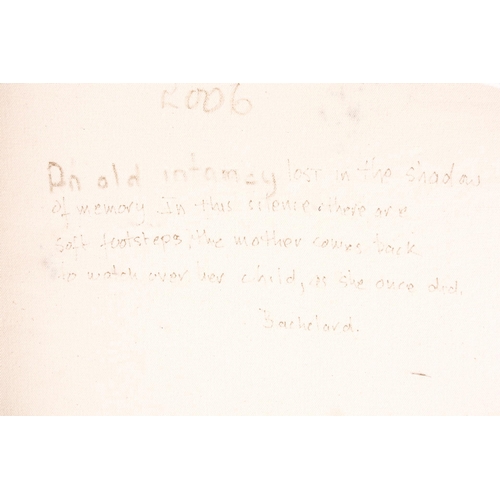 2006
An old intamacy lost in the shadow
of memory. In this silence there are
soft footsteps, the mother comes back
to watch over her child, as she once did.
Bachelard.